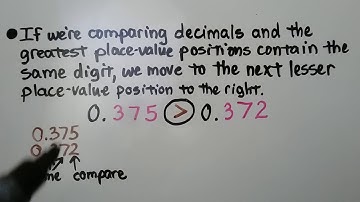 ● If we're comparing decimals and the
greatest place-value positions contain the
same digit, we move to the next lesser
place-value position to the right.
0.375 > 0.372
0.375
compare